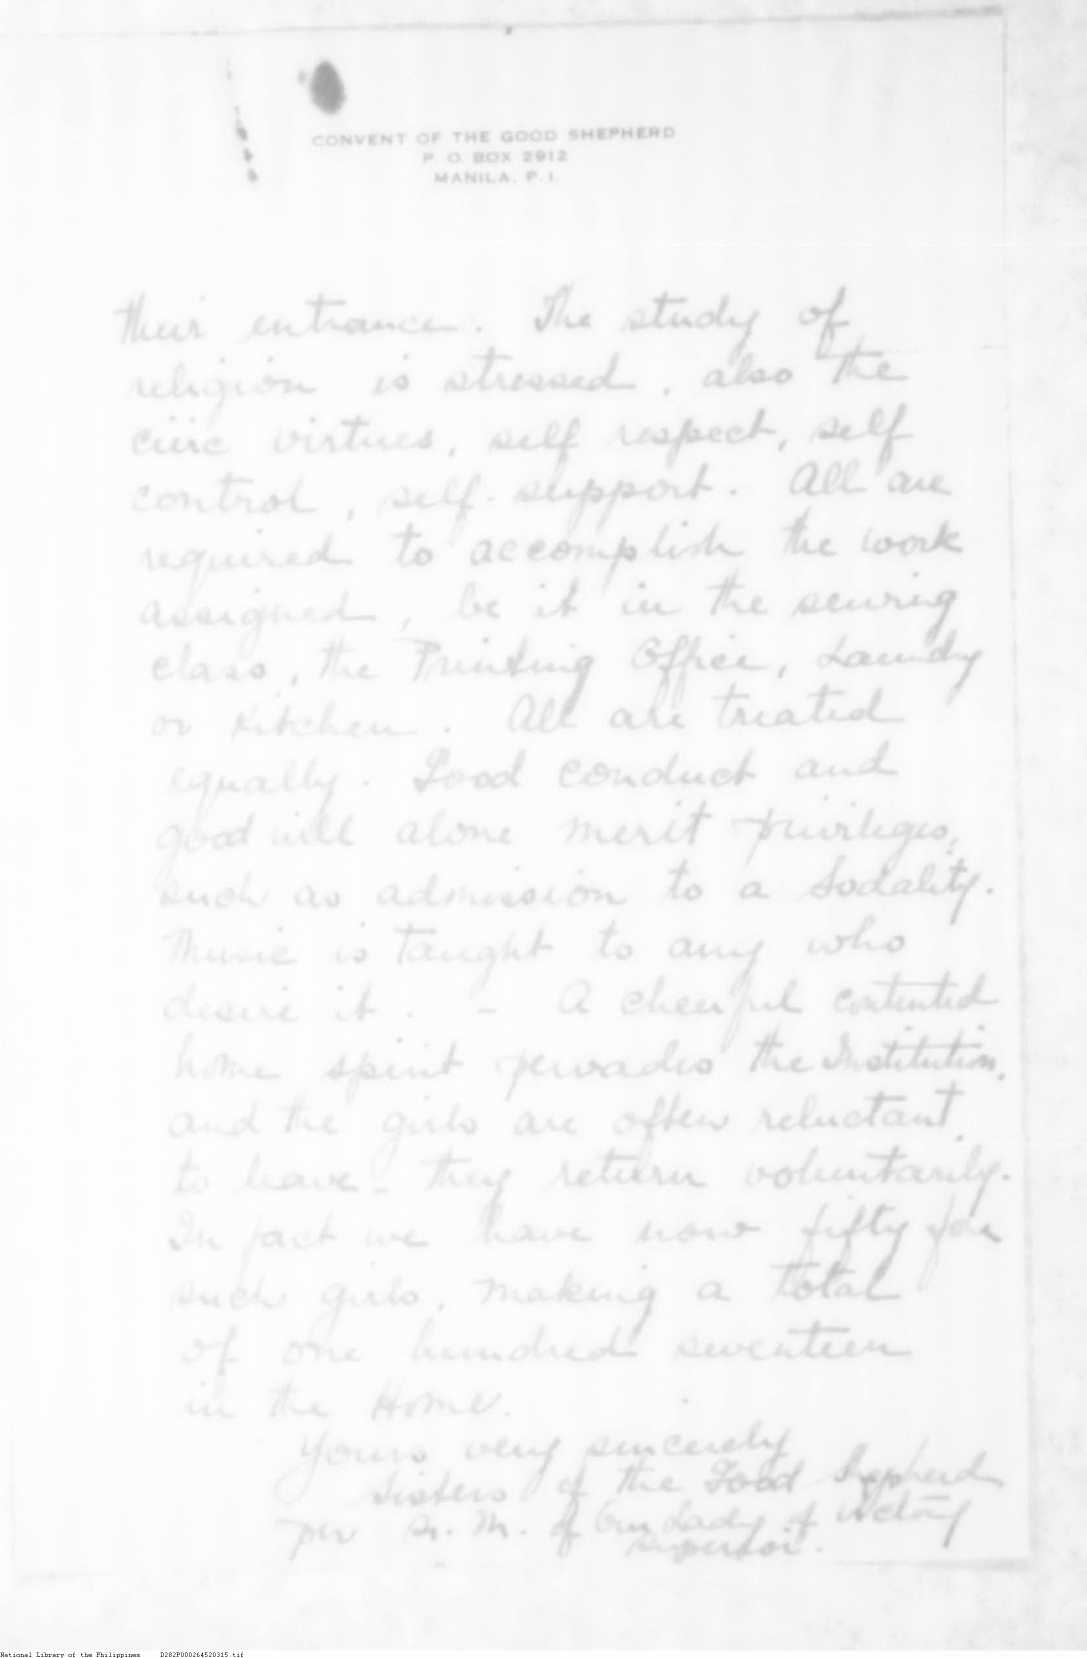 CONVENT OF THE GOOD SHEPHERD
P. O. BOX 2912
MANILA, P. I.
their entrance. The study of
religion is stressed, also the
civic virtues, self respect, self
control, self-support. All are
required to accomplish the work
assigned, be it in the sewing
class, the Printing Office, Laundry
or Kitchen. All are treated
equally. Good conduct and
good will alone merit privileges,
such as admission to a Sodality.
Music is taught to any who
desire it. - A cheerful contented
home spirit pervades the Institution,
and the girls are often reluctant
to leave - they return voluntarily.
In fact we have now fifty
such girls, making a total
of one hundred seventeen
in the Home.
Yours very sincerely
Sisters of the Good Shepherd
per Sr. M. of Our Lady of Victory
Superior.
National Library of the Philippines D282P000264520315.tif